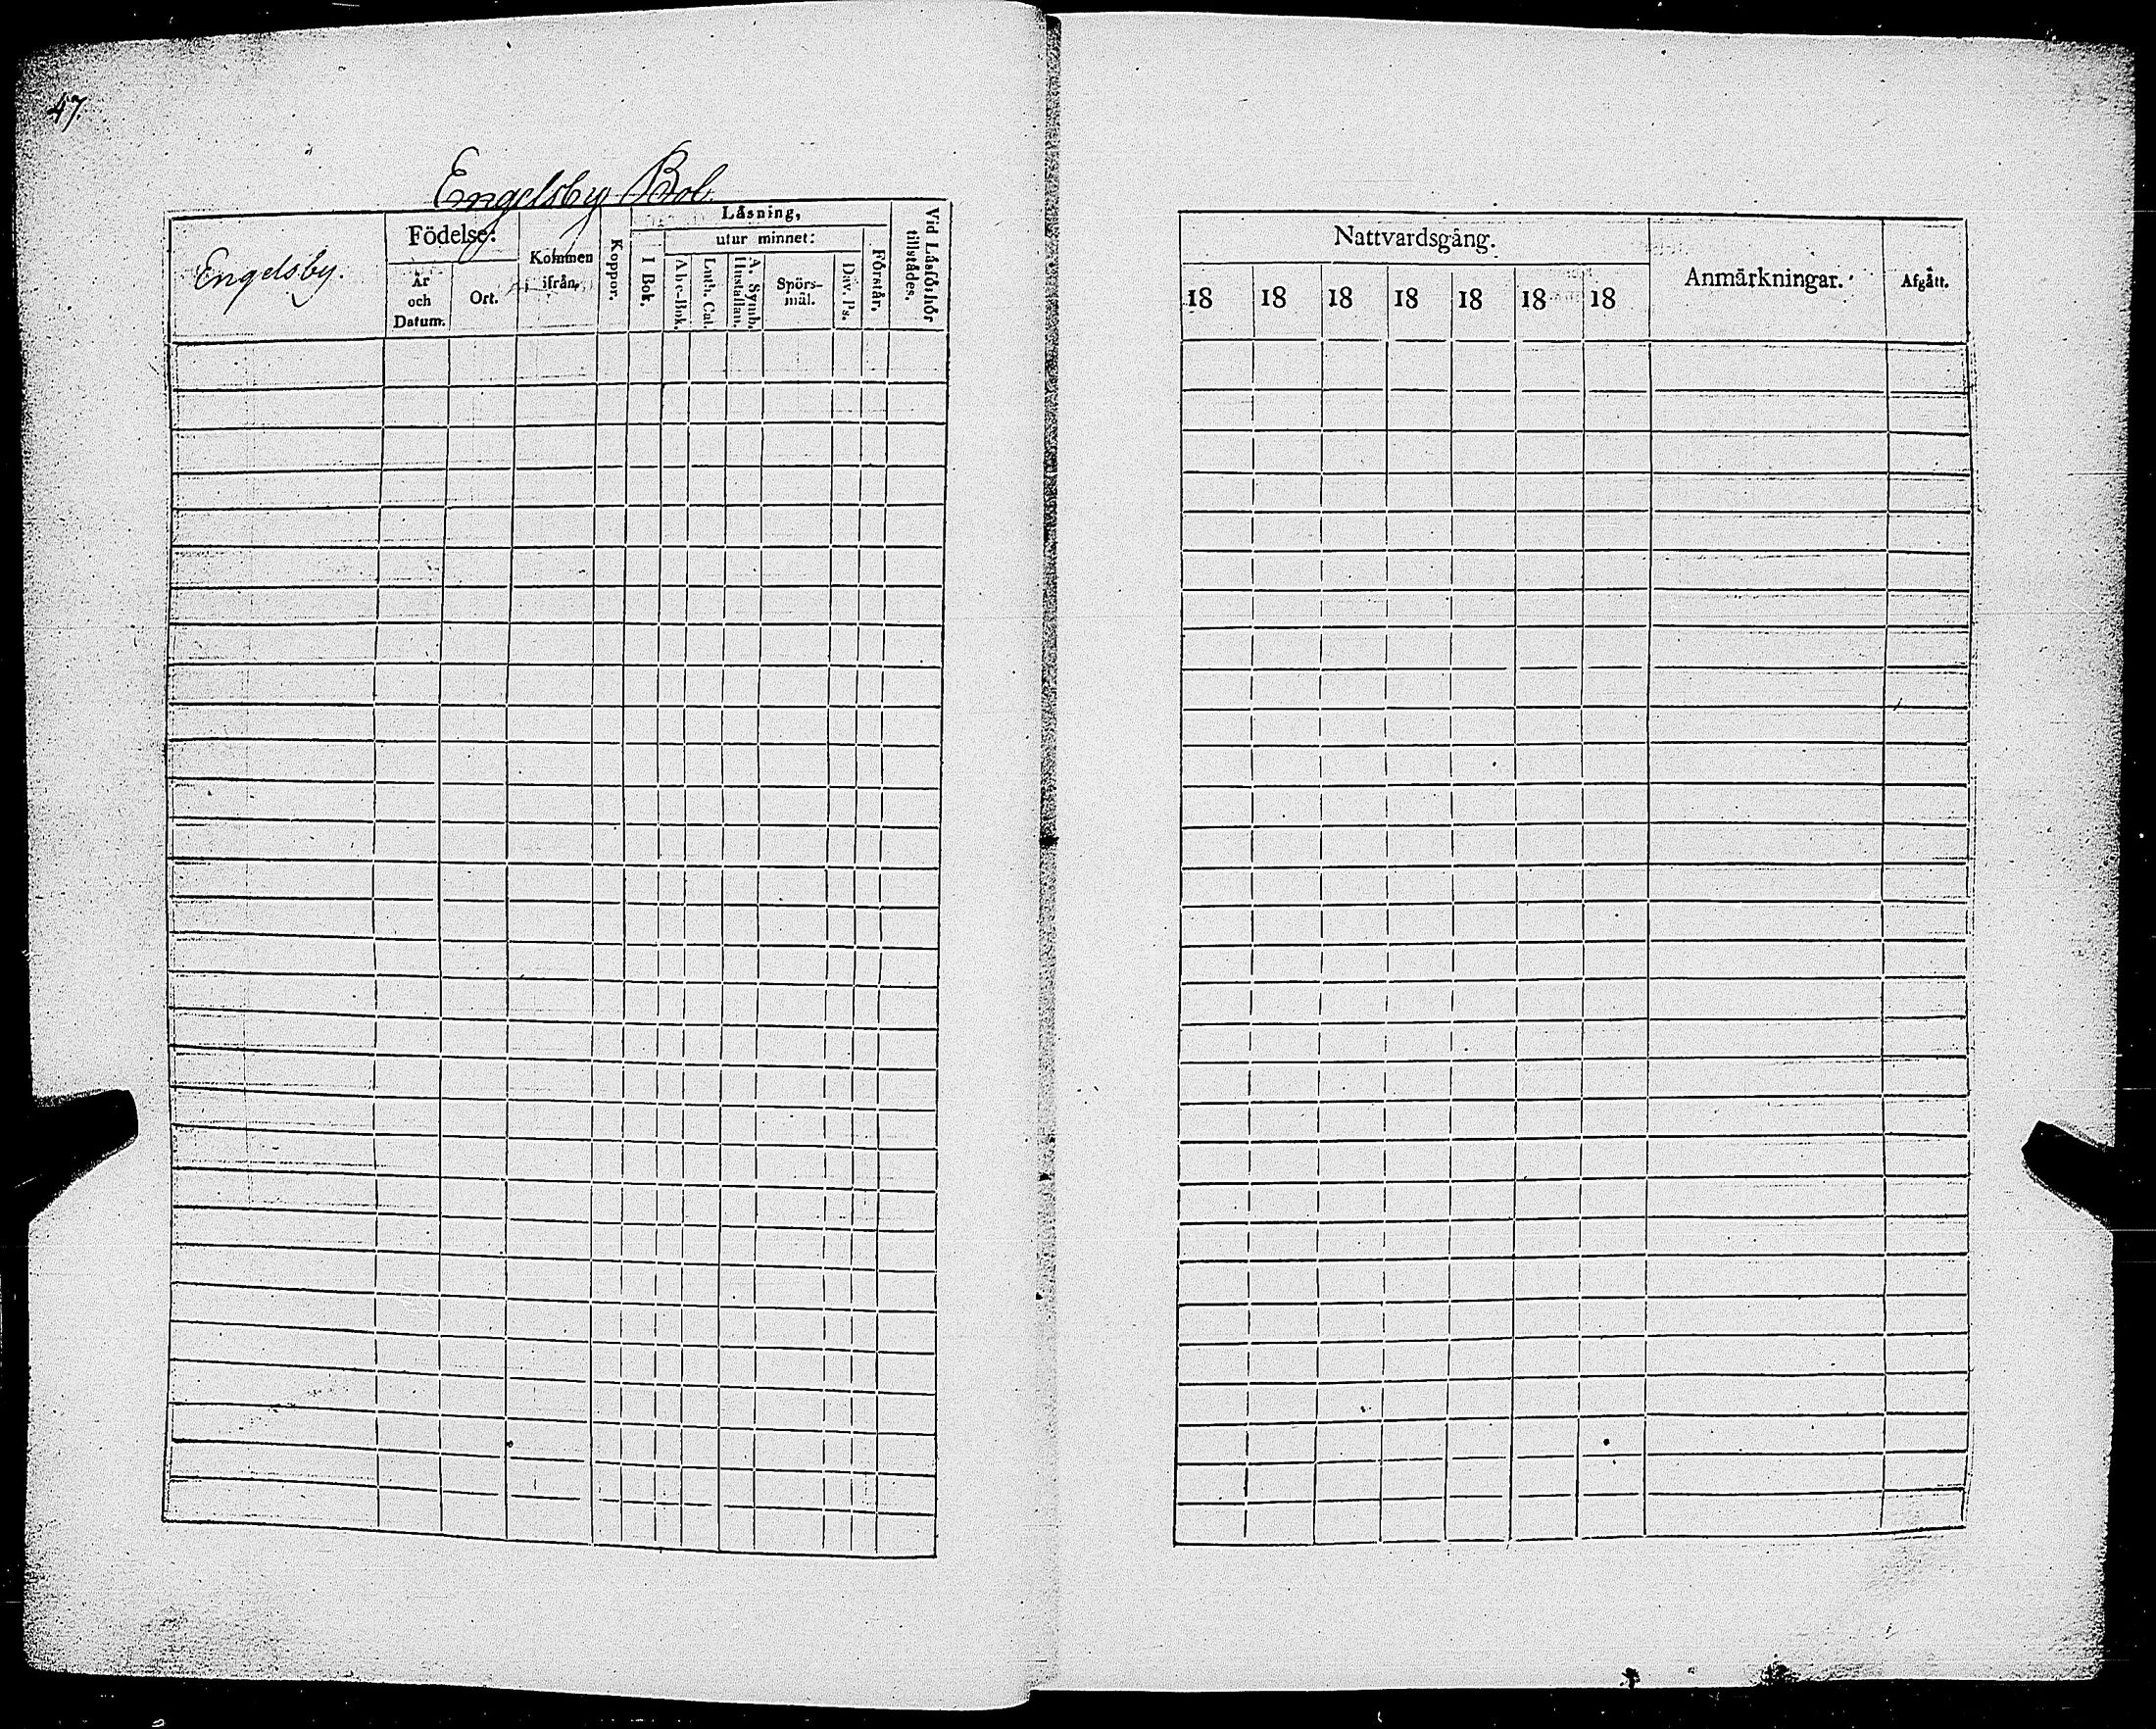 47.
Engelsby Bol.
Engelsby.
Födelse:
År
och
Datum.
Ort.
Kommen
ifrån.
Koppor.
Läsning,
I Bok.
utur minnet:
Abc-Bok.
Luth. Cat.
A. Symb.
Hustaflan.
Spörs-
mål.
Dav. Ps.
Förstår.
Vid Läsförhör
tillstädes.
Nattvardsgång.
18 18 18 18 18 18 18
Anmärkningar.
Afgått.